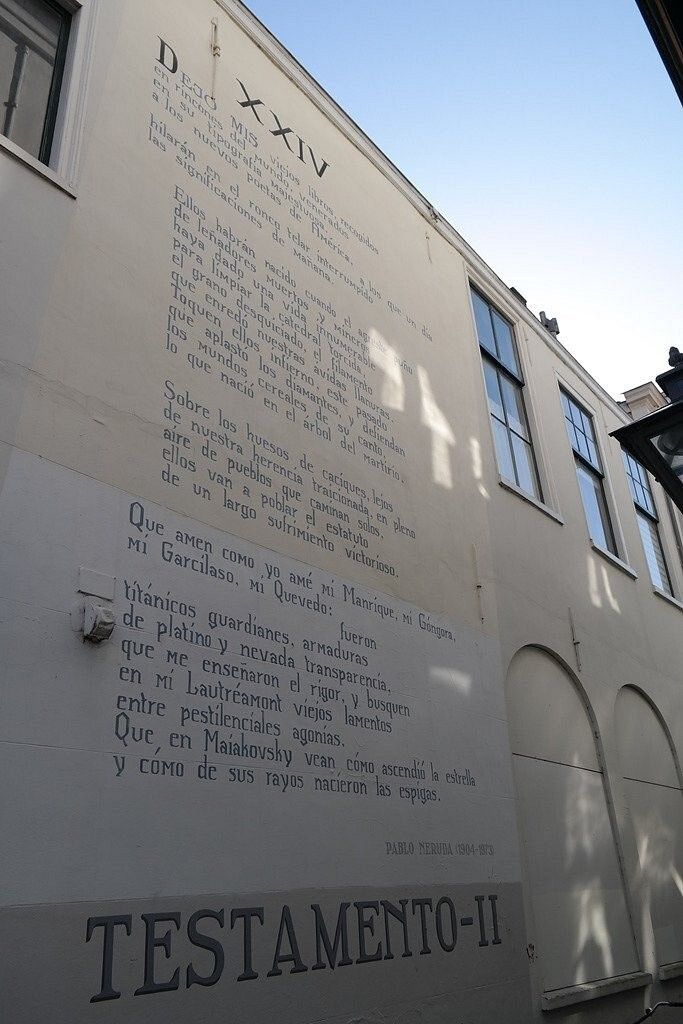 XXIV
Dejo mis viejos libros, recogidos
en rincones del mundo, venerados
en su tipografía majestuosa,
a los nuevos poetas de América,
a los que un día
hilarán en el ronco telar interrumpido
las significaciones de mañana.
Ellos habrán nacido cuando el agreste puño
de leñadores muertos y mineros
haya dado una vida innumerable
para limpiar la catedral torcida,
el grano desquiciado, el filamento
que enredó nuestras ávidas llanuras.
Toquen ellos infierno, este pasado
que aplastó los diamantes, y defiendan
los mundos cereales de su canto,
lo que nació en el árbol del martirio.
Sobre los huesos de caciques, lejos
de nuestra herencia traicionada, en pleno
aire de pueblos que caminan solos,
ellos van a poblar el estatuto
de un largo sufrimiento victorioso.
Que amen como yo amé mi Manrique, mi Góngora,
mi Garcilaso, mi Quevedo:
fueron
titánicos guardianes, armaduras
de platino y nevada transparencia,
que me enseñaron el rigor, y busquen
en mi Lautréamont viejos lamentos
entre pestilenciales agonías.
Que en Maiakovsky vean cómo ascendió la estrella
y cómo de sus rayos nacieron las espigas.
PABLO NERUDA (1904-1973)
TESTAMENTO-II